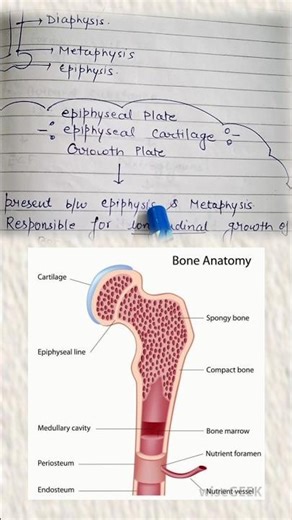 Diaphysis.
Metaphysis
epiphysis.
epiphyseal Plate
epiphyseal Cartilage
Growth Plate
present b/w epiphysis & Metaphysis.
Responsible for longitudinal growth of
Bone Anatomy
Cartilage
Spongy bone
Epiphyseal line
Compact bone
Medullary cavity
Bone marrow
Nutrient foramen
Periosteum
Endosteum
Nutrient vessel
wiseGEEK